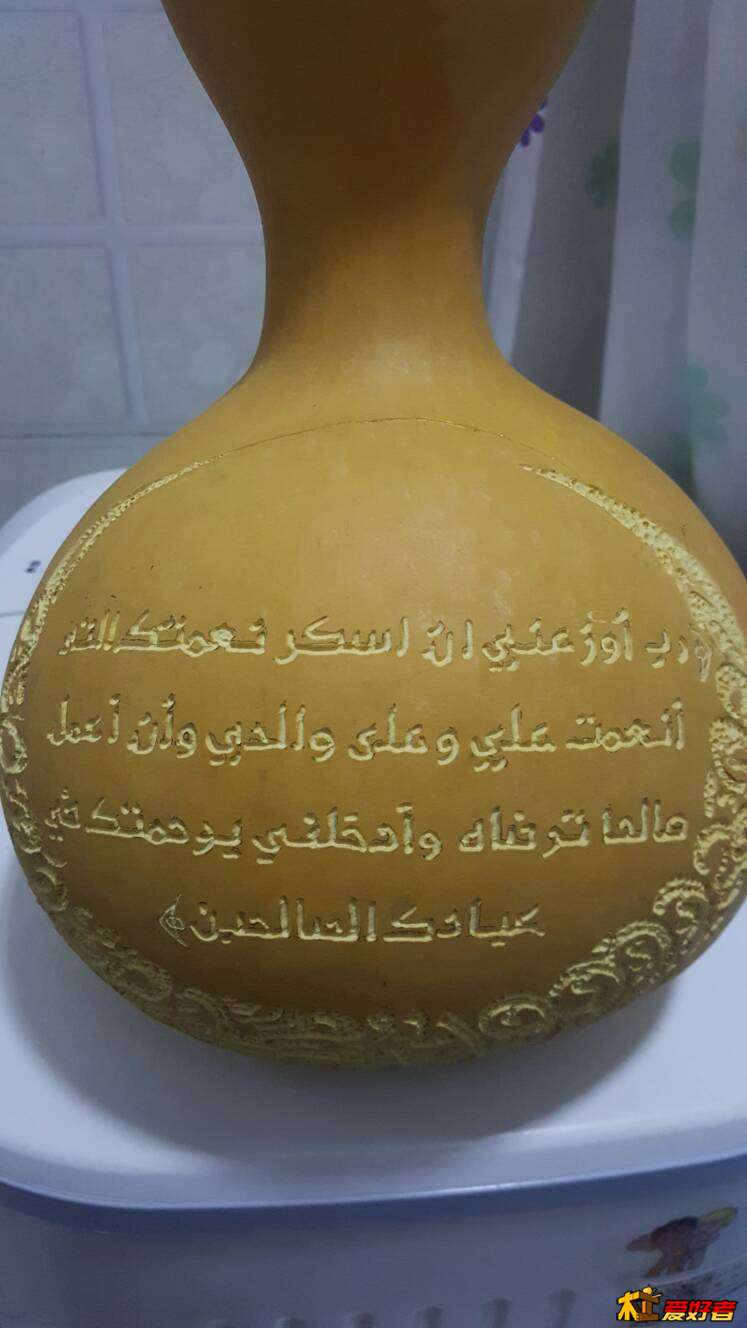 رب أوزعني ان اسكر نعمتك التي
أنعمت علي وعلى والدي وأن أعمل
صالحا ترضاه وأدخلني برحمتك في
عبادك الصالحين
爱好者